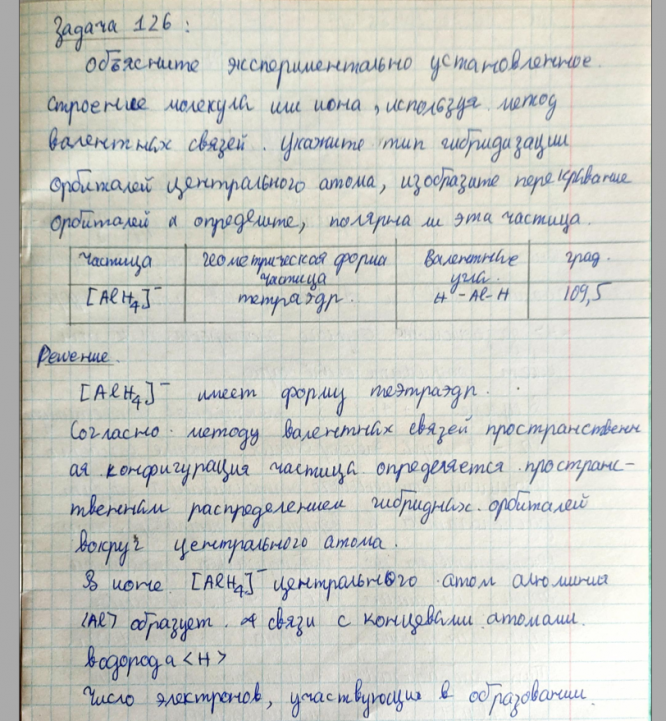 Задача 126:
Объясните экспериментально установленное
строение молекула или иона, используя метод
валентнах связей. Укажите тип гибридизации
орбиталей центрального атома, изобразите перекравание
орбиталей и определите, полярна ли эта частица.
Частица геометрическая форма частица Валентные угла. град.
[AlH4]⁻ тетраэдр. H-Al-H 109,5
Решение.
[AlH4]⁻ имеет форму теэтраэдр.
Согласно методу валентнах связей пространственн
ая конфигурация частица определяется пространс-
твеннам распределением гибриднах орбиталей
вокруг центрального атома.
В ионе [AlH4]⁻ центрального атом алюминия
<Al> образует 4 связи с концевами атомами
водорода <H>
Число электронов, участвующих в образовании